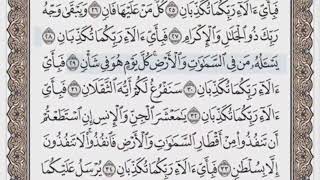 فَبِأَيِّ ءَالَآءِ رَبِّكُمَا تُكَذِّبَانِ ٢٥ كُلُّ مَنْ عَلَيْهَا فَانٍ ٢٦ وَيَبْقَىٰ وَجْهُ
رَبِّكَ ذُو ٱلْجَلَٰلِ وَٱلْإِكْرَامِ ٢٧ فَبِأَيِّ ءَالَآءِ رَبِّكُمَا تُكَذِّبَانِ ٢٨
يَسْـَٔلُهُۥ مَن فِى ٱلسَّمَٰوَٰتِ وَٱلْأَرْضِ ۚ كُلَّ يَوْمٍ هُوَ فِى شَأْنٍ ٢٩
فَبِأَيِّ ءَالَآءِ رَبِّكُمَا تُكَذِّبَانِ ٣٠ سَنَفْرُغُ لَكُمْ أَيُّهَ ٱلثَّقَلَانِ ٣١
فَبِأَيِّ ءَالَآءِ رَبِّكُمَا تُكَذِّبَانِ ٣٢ يَٰمَعْشَرَ ٱلْجِنِّ وَٱلْإِنسِ إِنِ ٱسْتَطَعْتُمْ
أَن تَنفُذُوا۟ مِنْ أَقْطَارِ ٱلسَّمَٰوَٰتِ وَٱلْأَرْضِ فَٱنفُذُوا۟ ۚ لَا تَنفُذُونَ
إِلَّا بِسُلْطَٰنٍ ٣٣ فَبِأَيِّ ءَالَآءِ رَبِّكُمَا تُكَذِّبَانِ ٣٤ يُرْسَلُ عَلَيْكُمَا